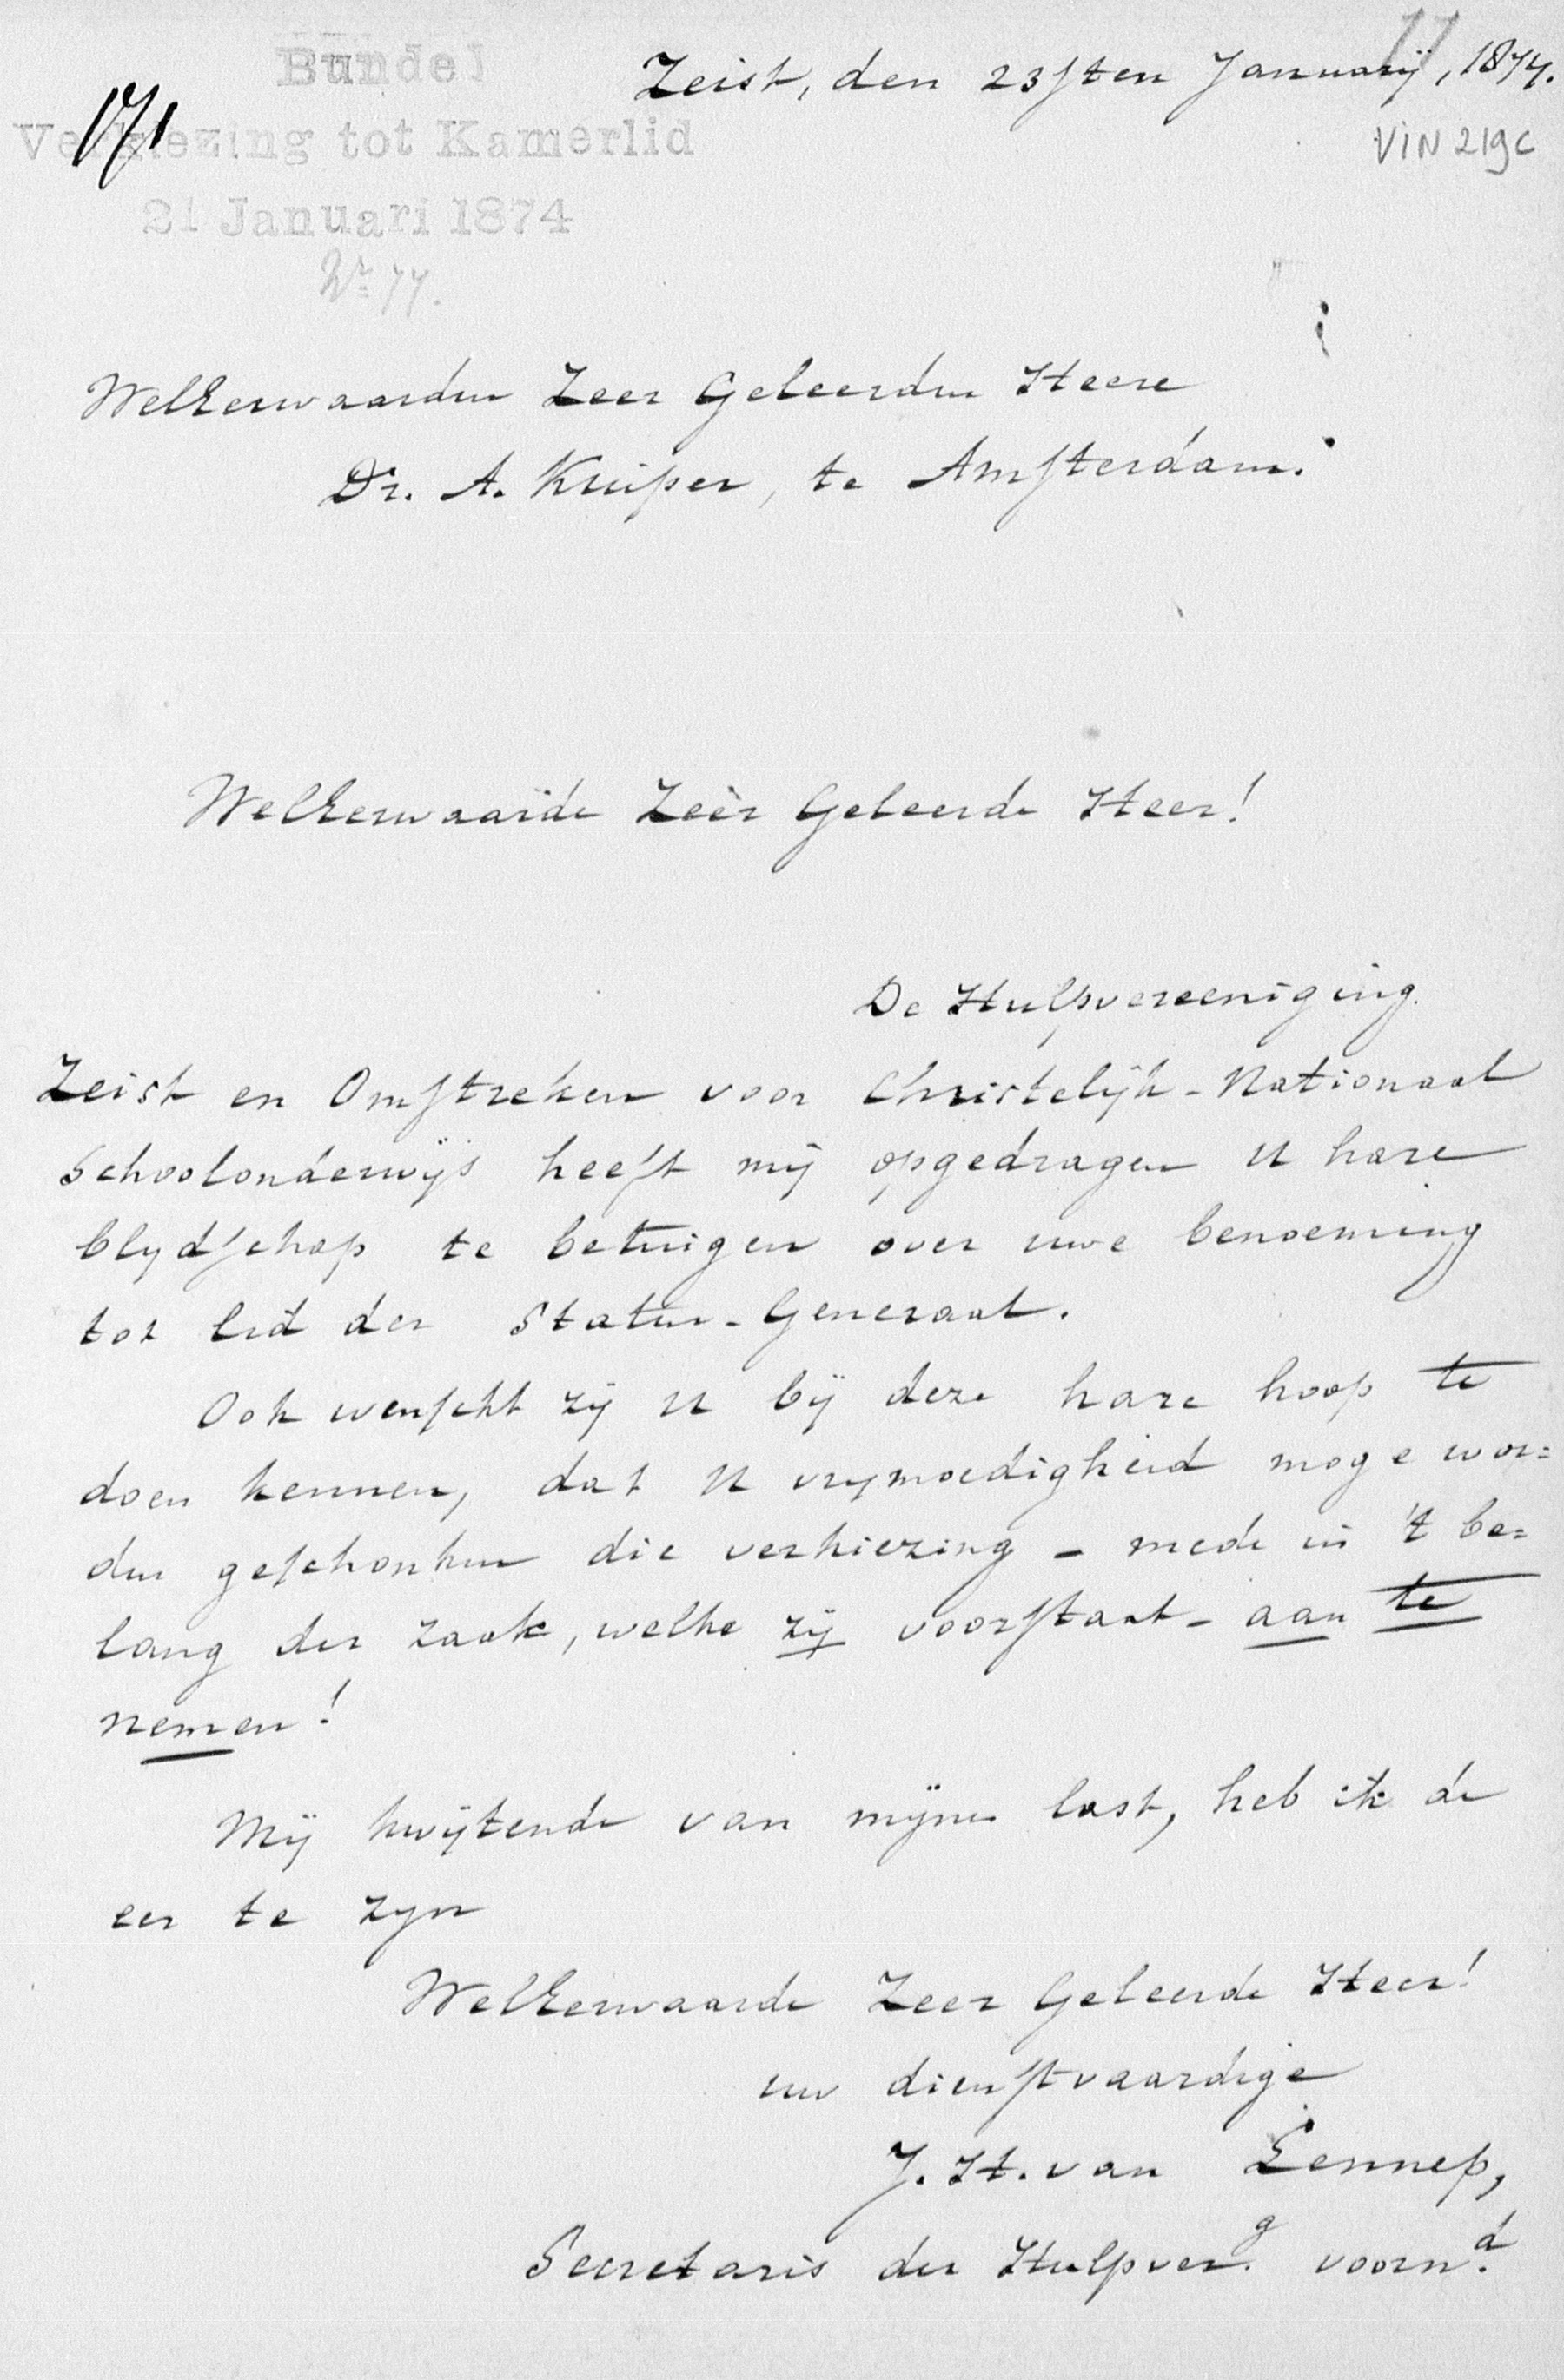 Bundel
Verkiezing tot Kamerlid
21 Januari 1874
171
Nr 77.
Zeist, den 23sten Januarij, 1874.
VIN 219c
WelEerwaarden Zeer Geleerden Heere
Dr. A. Kuiper, te Amsterdam.
WelEerwaarde Zeer Geleerde Heer!
De Hulpvereeniging
Zeist en Omstreken voor Christelijk-Nationaal
Schoolonderwijs heeft mij opgedragen U hare
blydschap te betuigen over uwe benoeming
tot lid der Staten-Generaal.
Ook wenscht zij U bij deze hare hoop te
doen kennen, dat U vrymoedigheid moge wor=
den geschonken die verkiezing - mede in 't be=
lang der zaak, welke zij voorstaat - aan te
nemen!
Mij kwijtende van mijnen last, heb ik de
eer te zyn
WelEerwaarde Zeer Geleerde Heer!
uw dienstvaardige
J. H. van Lennep,
Secretaris der Hulpver.g voorn.d